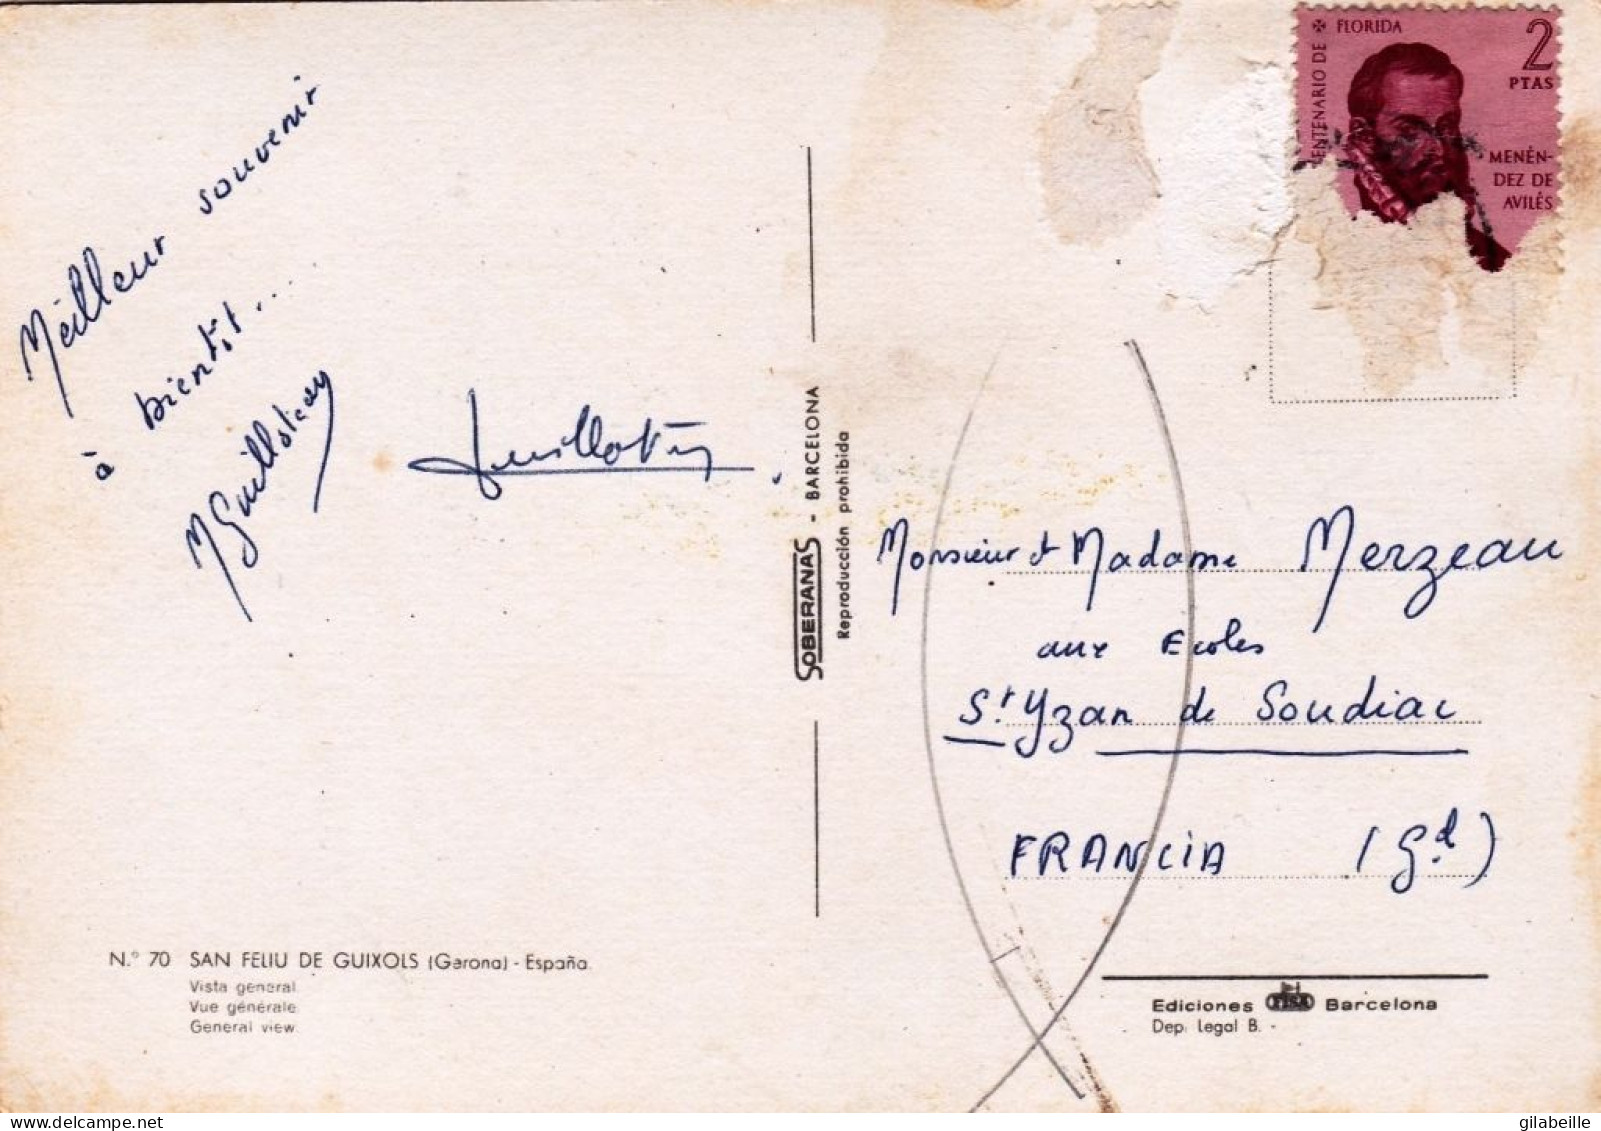 Meilleur souvenir
à bientôt...
CENTENARIO DE FLORIDA
2
PTAS
MENÉN-
DEZ DE
AVILÉS
SOBERANAS - BARCELONA
Reproducción prohibida
Monsieur et Madame Merzeau
aux Ecoles
St. Yzan de Soudiac
FRANCIA (Gd)
N.° 70 SAN FELIU DE GUIXOLS (Gerona) - España.
Vista general
Vue générale
General view
Ediciones FISA Barcelona
Dep. Legal B. -
gilabeille